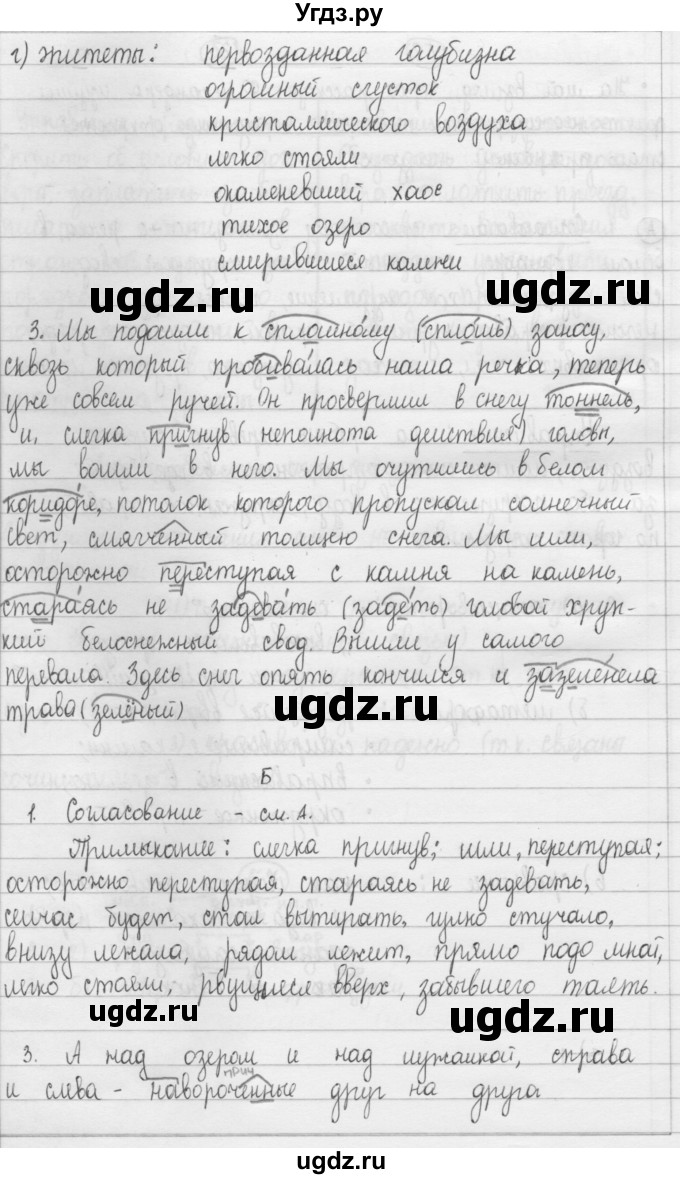 Угдз.ру
г) эпитеты: первозданная голубизна
огромный сгусток
кристаллического воздуха
легко стояли
окаменевший хаос
тихое озеро
смирившиеся камни
ugdz.ru ugdz.ru
3. Мы подошли к сплошному (сплошь) заносу,
сквозь который пробивалась наша речка, теперь
уже совсем ручей. Он просверлил в снегу тоннель,
и, слегка пригнув (неполнота действия) головы,
мы вошли в него. Мы очутились в белом
коридоре, потолок которого пропускал солнечный
свет, смягчённый толщею снега. Мы шли,
осторожно переступая с камня на камень,
стараясь не задевать (задеть) головой хруп-
кий белоснежный свод. Вышли у самого
перевала. Здесь снег опять кончился и зазеленела
трава (зелёный)
ugdz.ru
Б
1. Согласование - см. А.
Примыкание: слегка пригнув; шли, переступая;
осторожно переступая, стараясь не задевать,
сейчас будет, стал вытирать, гулко стучало,
внизу лежала, рядом лежит, прямо подо мной,
легко стояли, рвущиеся вверх, забывшего таять.
ugdz.ru ugdz.ru
3. А над озером и над лужайкой, справа
прич
и слева - навороченные друг на друга
ugdz.ru